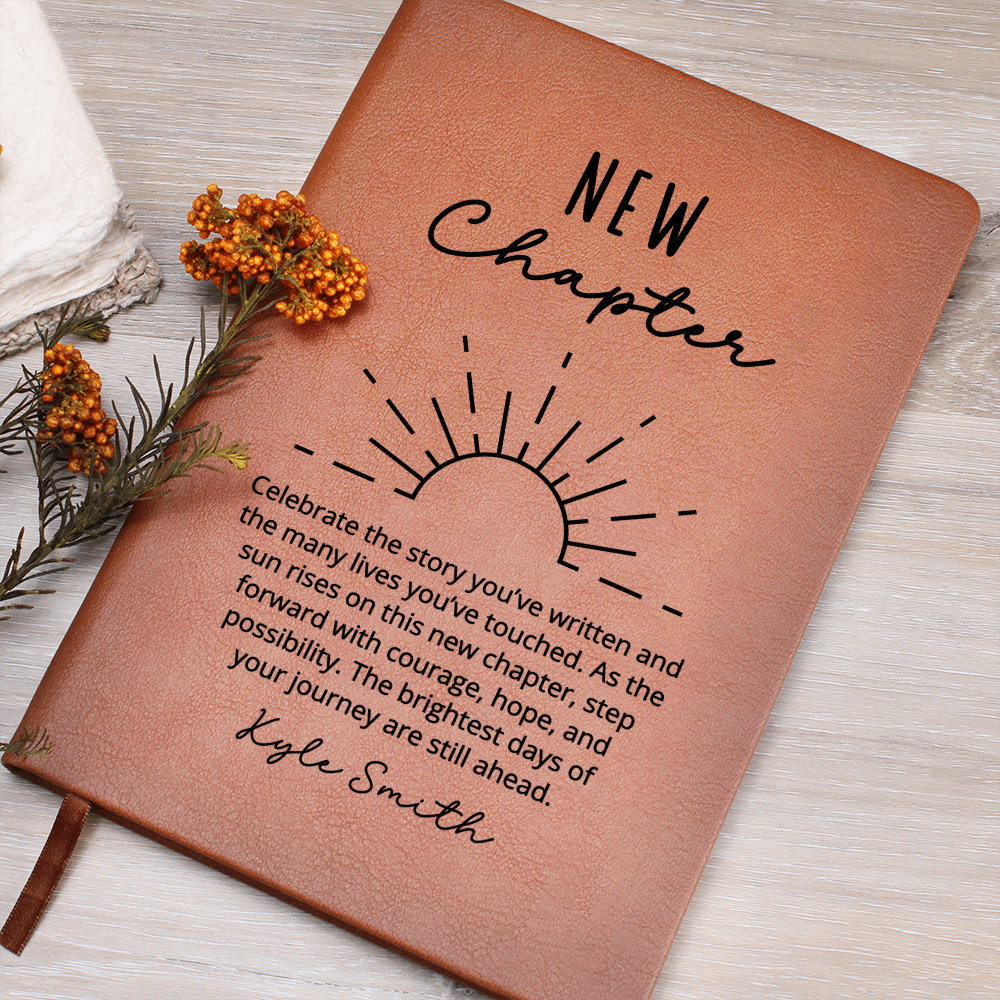 NEW
Chapter
Celebrate the story you've written and
the many lives you've touched. As the
sun rises on this new chapter, step
forward with courage, hope, and
possibility. The brightest days of
your journey are still ahead.
Kyle Smith